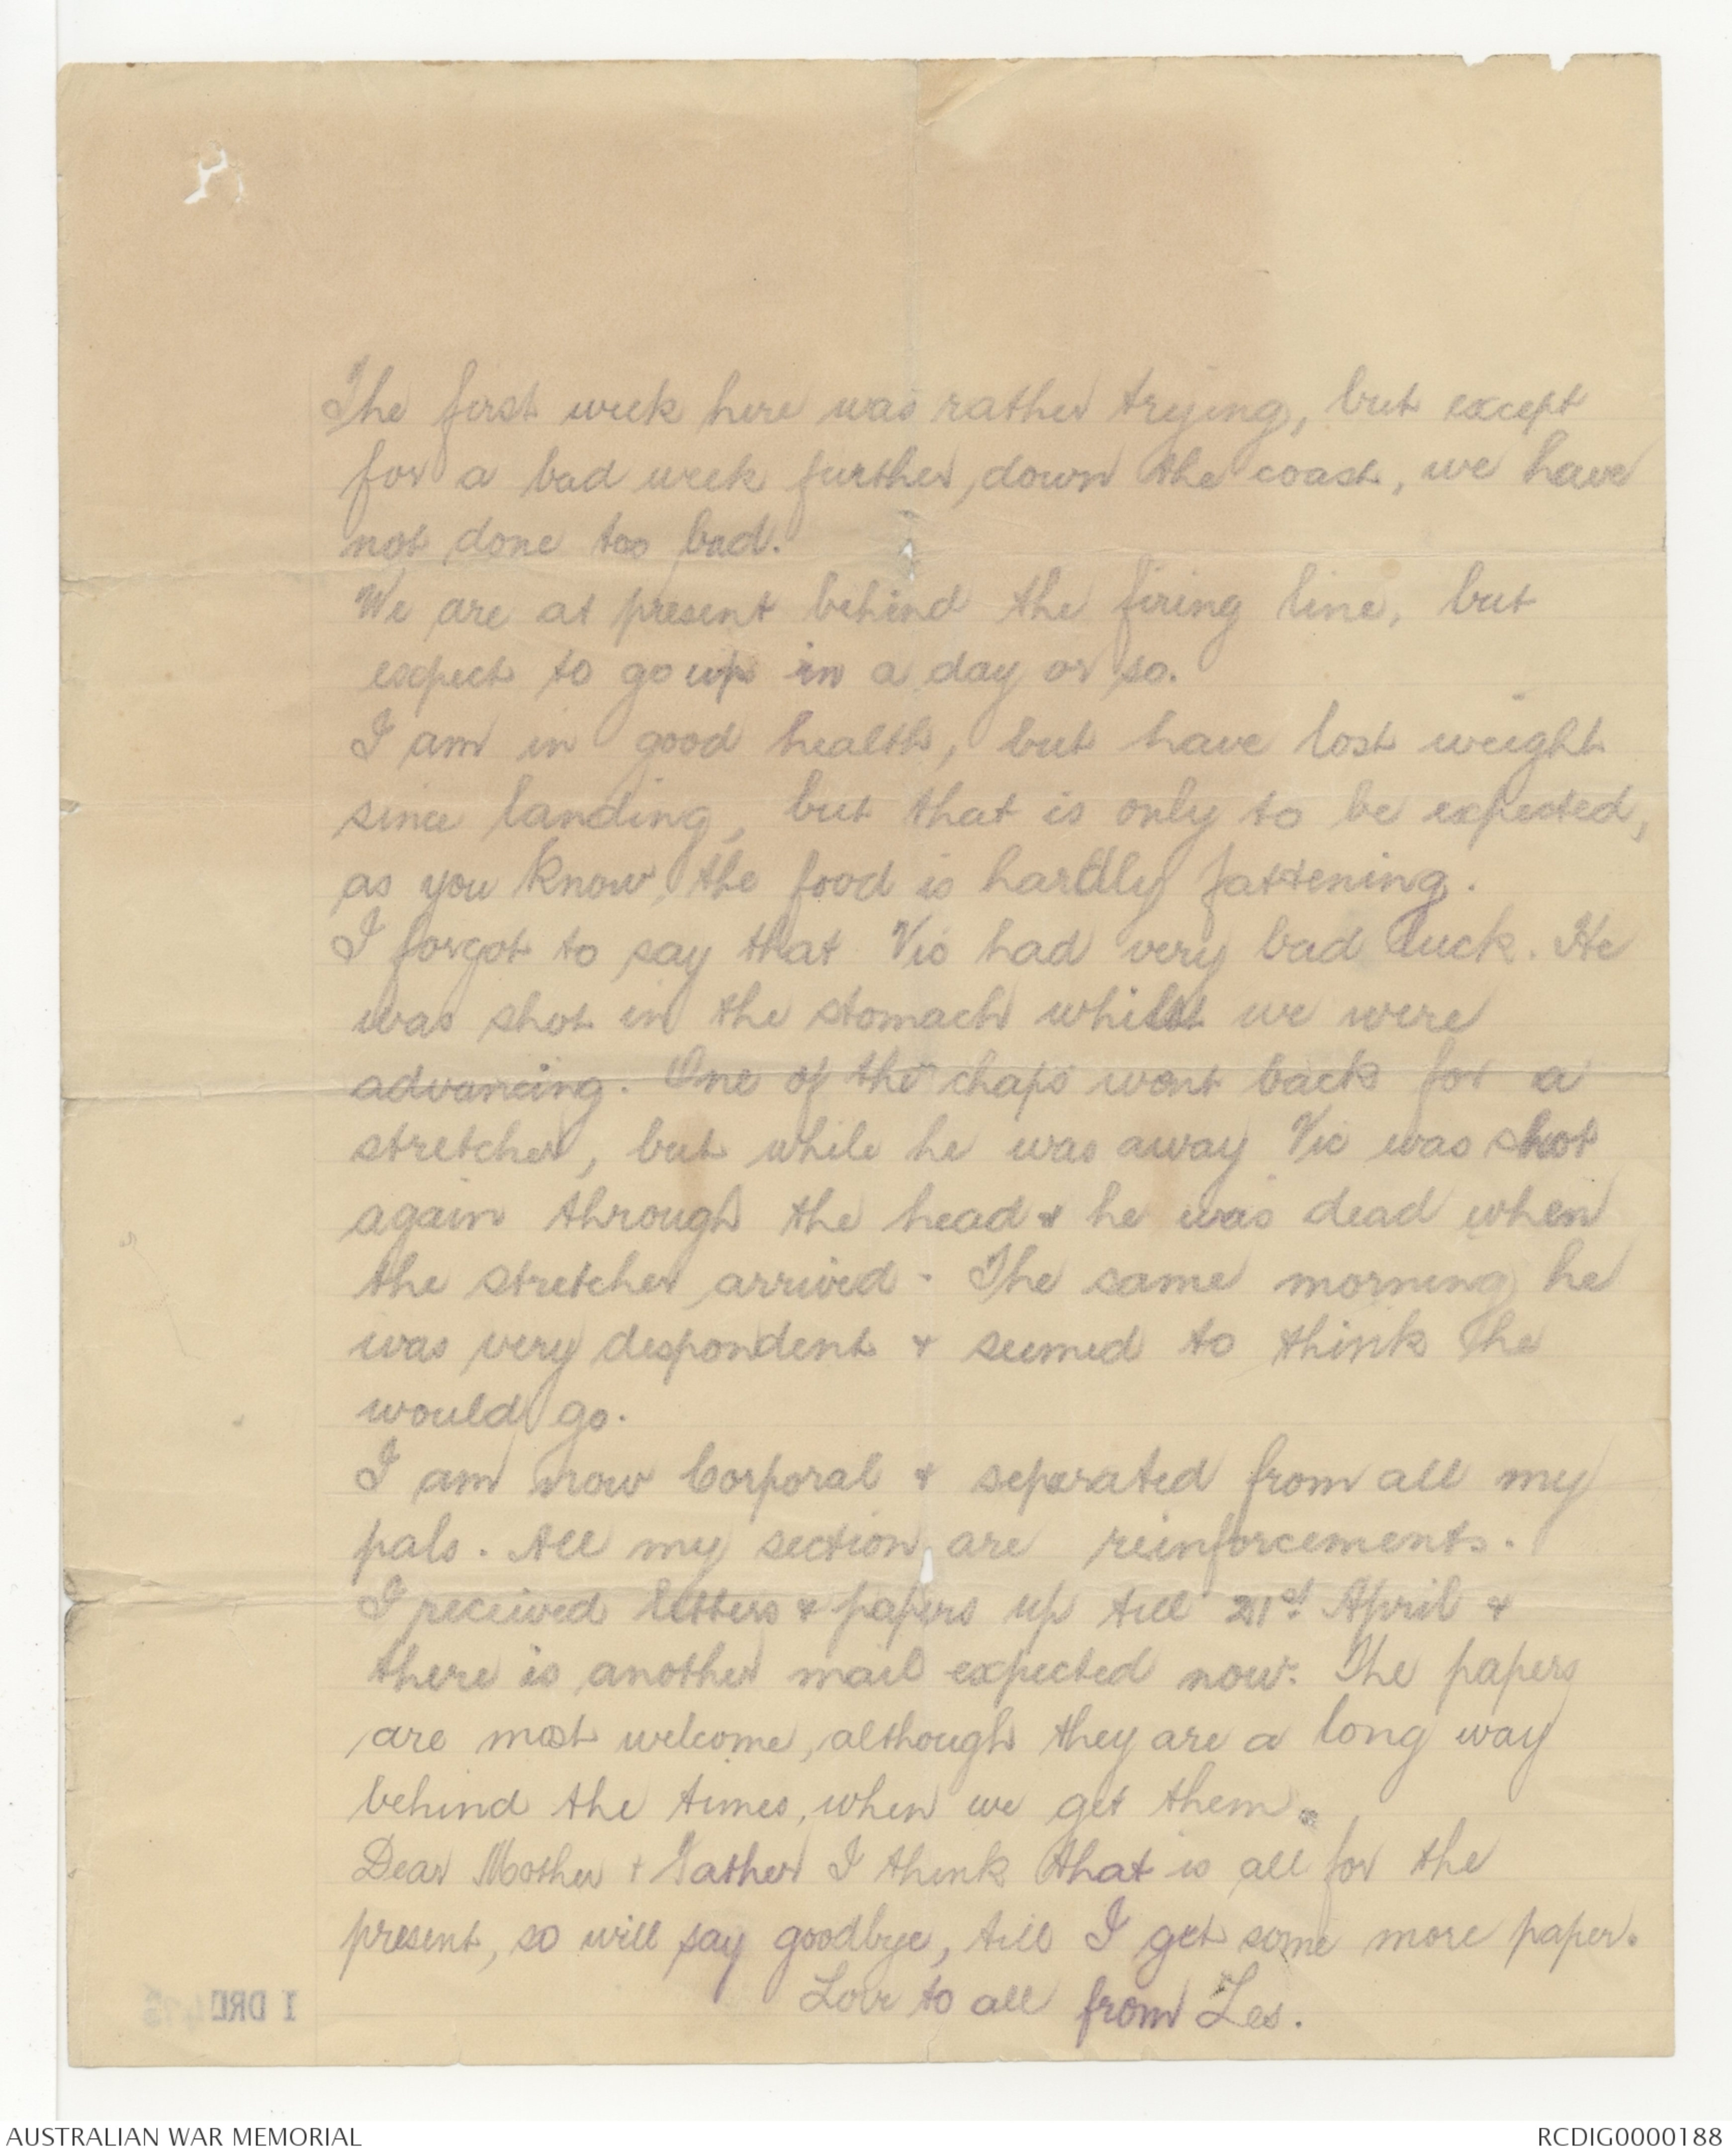 The first week here was rather trying, but except
for a bad week further, down the coast, we have
not done too bad.
We are at present behind the firing line, but
expect to go up in a day or so.
I am in good health, but have lost weight
since landing, but that is only to be expected,
as you know, the food is hardly fattening.
I forgot to say that Vic had very bad luck. He
was shot in the stomach whilst we were
advancing. One of the chaps went back for a
stretcher, but while he was away Vic was shot
again through the head & he was dead when
the stretcher arrived. The same morning he
was very despondent & seemed to think he
would go.
I am now Corporal & separated from all my
pals. All my section are reinforcements.
I received letters & papers up till 21st April &
there is another mail expected now. The papers
are most welcome, although they are a long way
behind the times, when we get them.
Dear Mother & Father I think that is all for the
present, so will say goodbye, till I get some more paper.
Love to all from Les.
1 DRL
AUSTRALIAN WAR MEMORIAL
RCDIG0000188